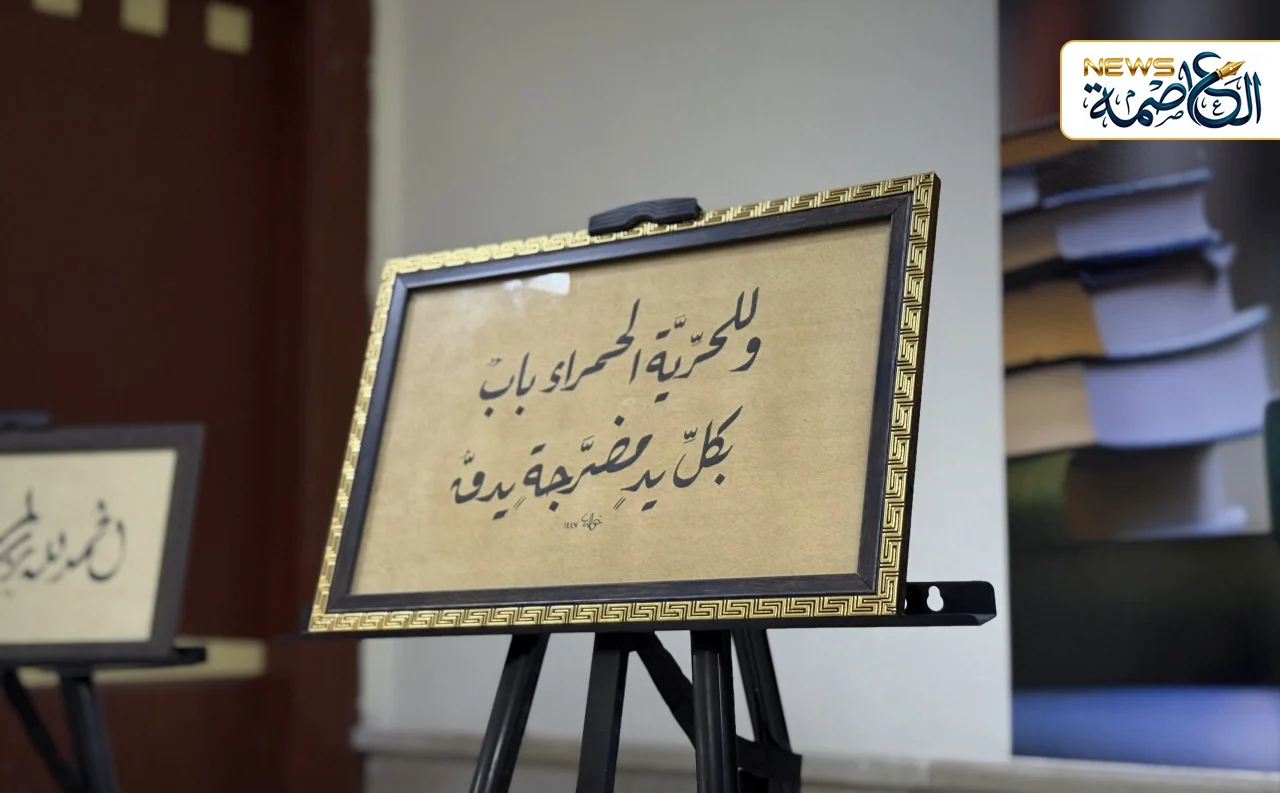 NEWS
العاصمة
وللحرِّيَّة الحمراء بابٌ
بكلِّ يدٍ مضرَّجةٍ يدقُّ
الحمد لله